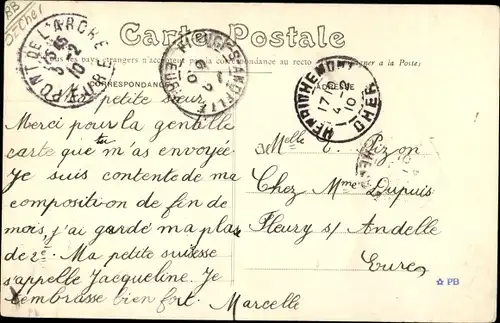 BB
DECher
Carte Postale
Tous les pays étrangers n'acceptent pas la correspondance au recto à la Poste
CORRESPONDANCE
PONT DE L'ARCHE
EURE
FLEURY-S-ANDELLE
EURE
HENRICHEMONT
CHER
17
4 -2
10
petite sœur
Merci pour la gentille
carte que tu m'as envoyée.
Je suis contente de ma
composition de fin de
mois, j'ai gardé ma place
de 2e. Ma petite suissesse
s'appelle Jacqueline. Je
t'embrasse bien fort. Marcelle
Melle C. Pizon
Chez Mme Dupuis
Fleury s/ Andelle
Eure
☆ PB